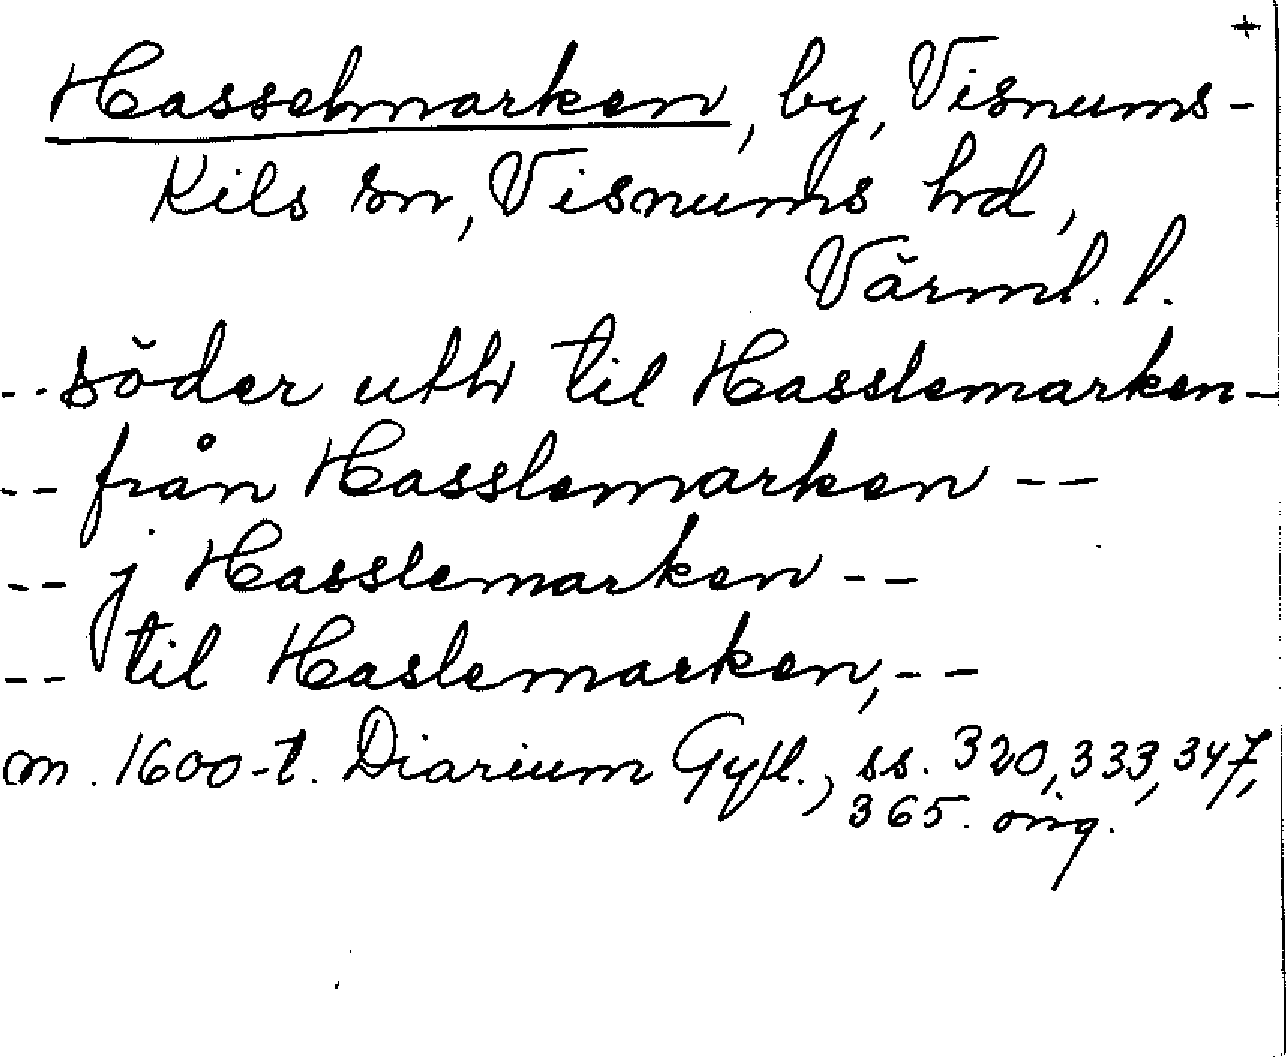 +
Hasselmarken, by, Visnums-
Kils sn, Visnums hd,
Värml. l.
-- söder uthi til Hasslemarken --
-- från Hasslemarken --
-- j Hasslemarken --
-- til Haslemarken, --
m. 1600-t. Diarium Gyll., ss. 320, 333, 347,
365. orig.